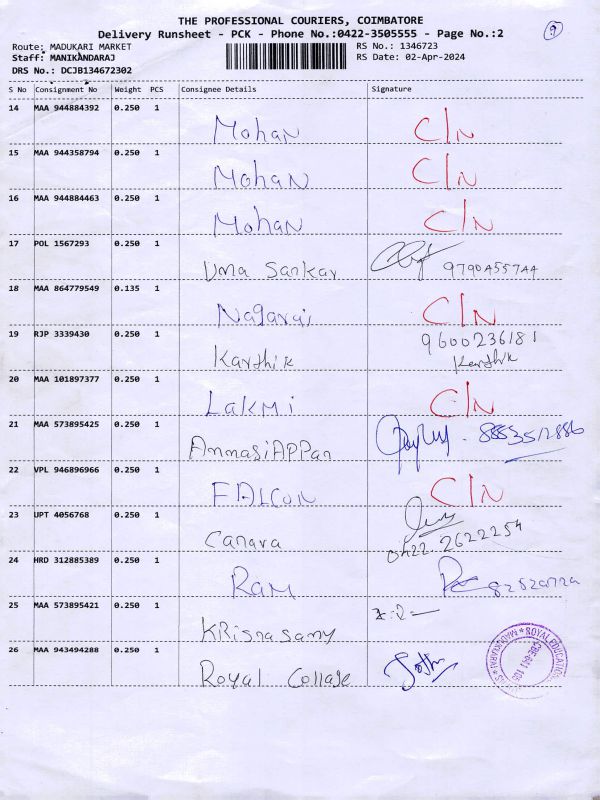 THE PROFESSIONAL COURIERS, COIMBATORE
Delivery Runsheet - PCK - Phone No.:0422-3505555 - Page No.:2
9
Route: MADUKARI MARKET
Staff: MANIKANDARAJ
DRS No.: DCJB134672302
RS No.: 1346723
RS Date: 02-Apr-2024
S No Consignment No Weight PCS Consignee Details Signature
14 MAA 944884392 0.250 1
Mohan C/N
15 MAA 944358794 0.250 1
Mohan C/N
16 MAA 944884463 0.250 1
Mohan C/N
17 POL 1567293 0.250 1
Uma Sankar
18 MAA 864779549 0.135 1
Nagaraj C/N
19 RJP 3339430 0.250 1
Karthik 9600236181
Karthik
20 MAA 101897377 0.250 1
Lakmi C/N
21 MAA 573895425 0.250 1
AmmasiAPPan
22 VPL 946896966 0.250 1
FALCON C/N
23 UPT 4056768 0.250 1
Canara 0422.2622254
24 HRD 312885389 0.250 1
Ram
25 MAA 573895421 0.250 1
KRisnasamy
26 MAA 943494288 0.250 1
Royal Collage
ROYAL EDUCATION